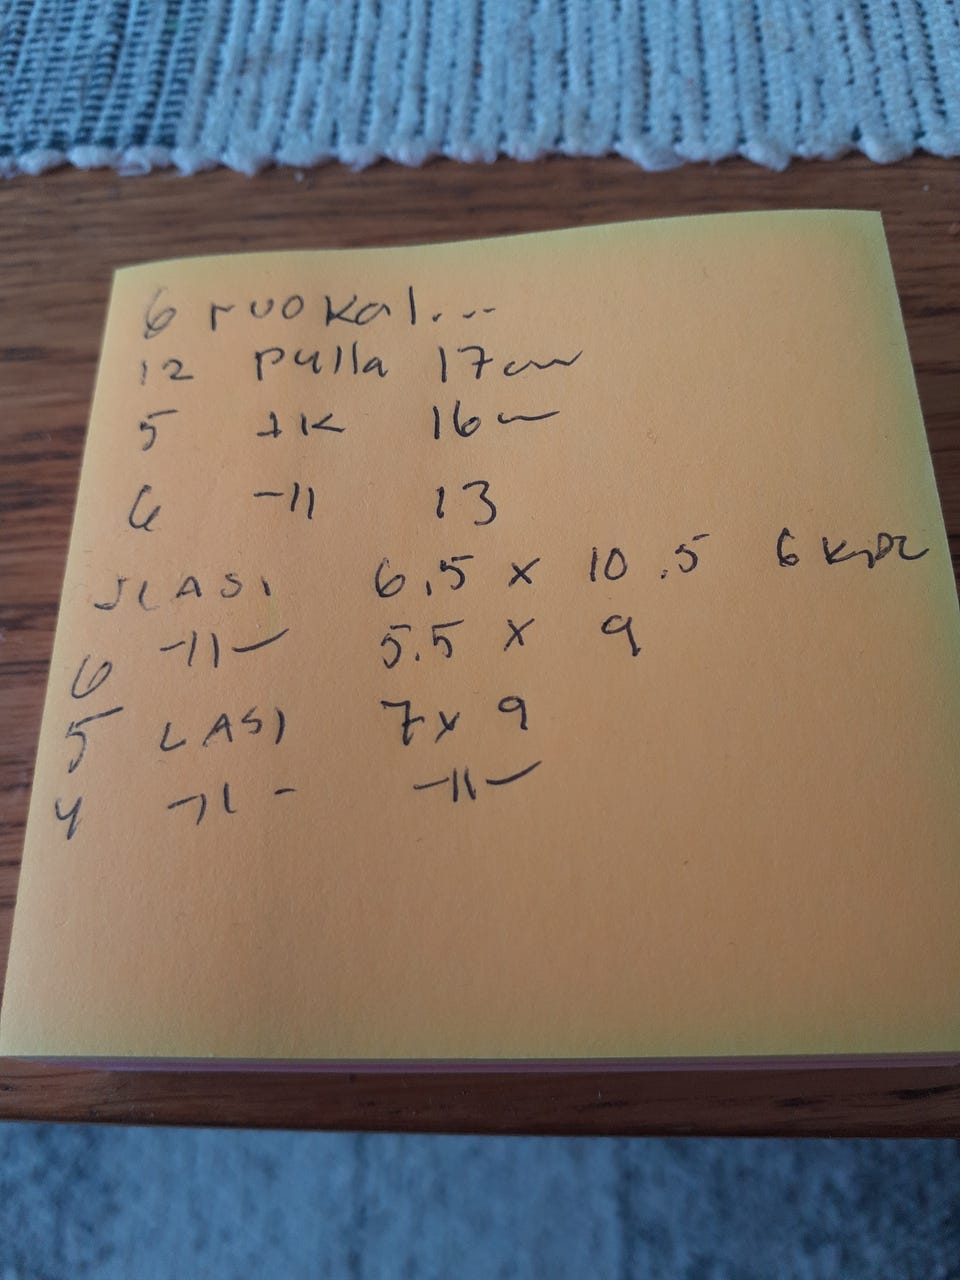 6 ruokal...
12 pulla 17cm
5 -11- 16cm
6 -11 13
LASI 6,5 x 10.5 6 kpl
6 -11- 5.5 x 9
5 LASI 7x 9
4 -11- -11-